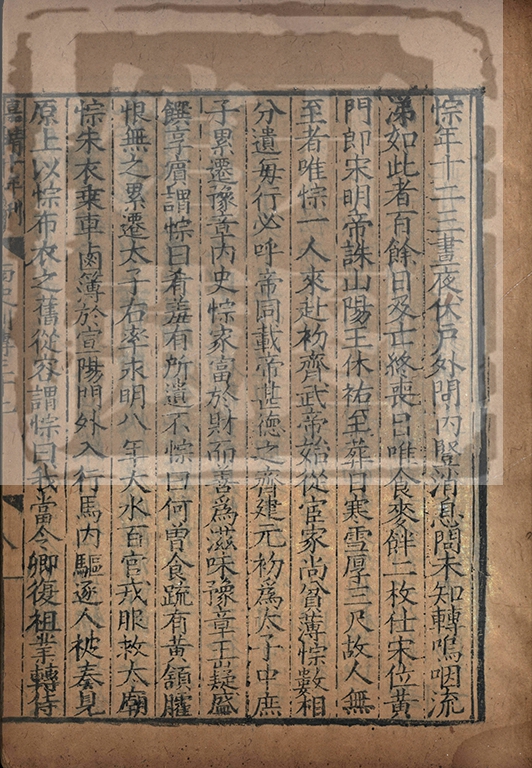 悰年十二三晝夜伏戶外問内豎消息問未知轉嗚咽流
涕如此者百餘日及亡終喪日唯食麥餅二枚仕宋位黄
門郎宋明帝誅山陽王休祐至葬日寒雪厚三尺故人無
至者唯悰一人來赴初齊武帝始從宦家尚貧薄悰數相
分遺每行必呼帝同載帝甚德之齊建元初為太子中庶
子累遷豫章内史悰家富於財而善為滋味豫章王嶷盛
饌享賓謂悰曰肴羞有所遺不悰曰何曾食疏有黄頷臛
恨無之累遷太子右率永明八年大水百官戎服救太廟
悰朱衣乗車鹵簿於宣陽門外入行馬内驅逐人被奏見
原上以悰布衣之舊從容謂悰曰我當令卿復祖業轉侍